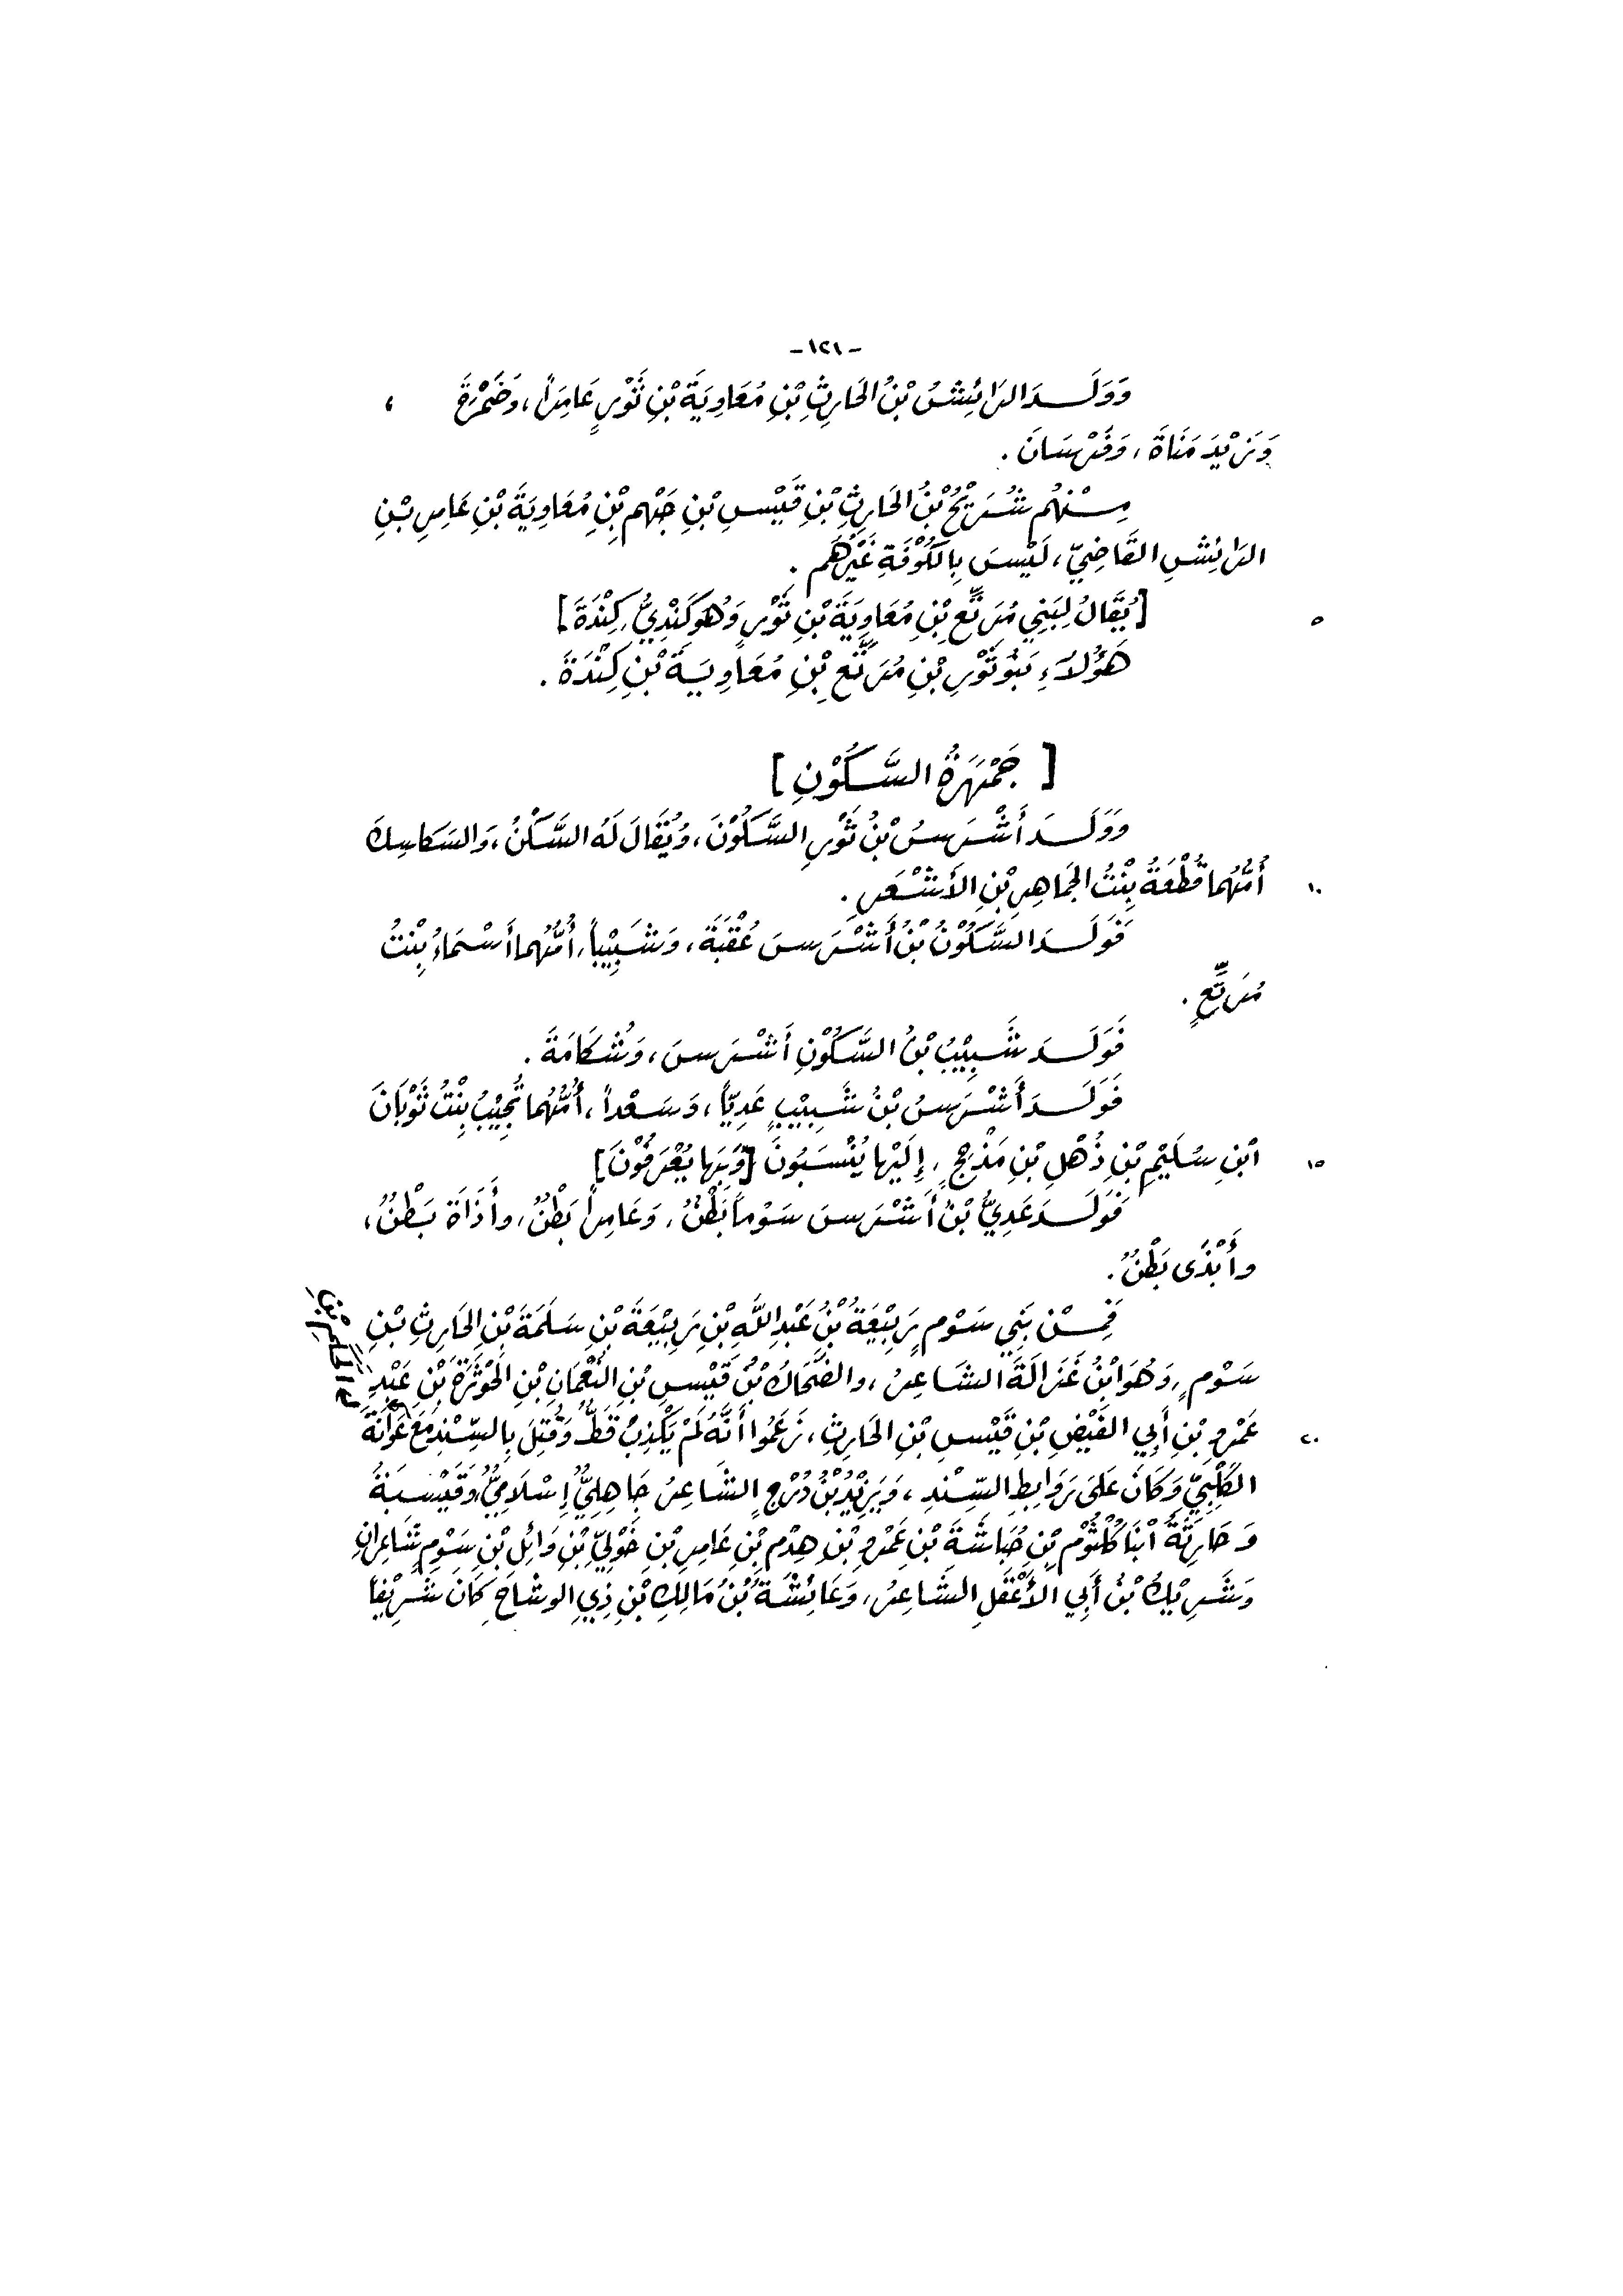 -١٢١-
وَوَلَـدَ الرَائِشُ بْنُ الحَارِثِ بْنِ مُعَاوِيَةَ بْنِ ثَوْرٍ عَامِراً، وَضَمْرَةَ ،
وَزَيْدَ مَنَاةَ، وَفَرْسَانَ .
مِـنْهُم شُرَيْحُ بْنُ الحَارِثِ بْنِ قَيْسِ بْنِ جَهْمِ بْنِ مُعَاوِيَةَ بْنِ عَامِرِ بْنِ
الرَائِشِ القَاضِيّ، لَيْسَ بِالكُوْفَةِ غَيْرُهُم .
[يُقَالُ لِبَنِي مُرَتِّعِ بْنِ مُعَاوِيَةَ بْنِ ثَوْرٍ وَهُوَ كِنْدِيُّ، كِنْدَةَ] ٥
هَؤُلَاءِ بَنُو ثَوْرِ بْنِ مُرَتِّعِ بْنِ مُعَاوِيَـةَ بْنِ كِنْدَةَ .
[ جَمْهَرَةُ السَّـكُوْنِ ]
وَوَلَـدَ أَشْرَسُ بْنُ ثَوْرٍ السَّكُوْنَ، وَيُقَالُ لَهُ السَّكْنُ، وَالسَكاسِكَ
أُمُّهُما قُطْعَةُ بِنْتُ الجَماهِرِ بْنِ الأَشْعَرِ . ١٠
فَوَلَـدَ السَّكُوْنُ بْنُ أَشْرَسَ عُقْبَةَ، وَشَبِيْباً، أُمُّهُما أَسْمَاءُ بِنْتُ
مُرَتِّعٍ .
فَوَلَـدَ شَبِيْبُ بْنُ السَّكُوْنِ أَشْرَسَ، وَشُكَامَةَ .
فَوَلَـدَ أَشْرَسُ بْنُ شَبِيْبٍ عَدِيّاً، وَسَعْداً، أُمُّهُما تُجِيْبُ بِنْتُ ثَوْبَانَ
ابْنِ سُلَيْمِ بْنِ ذُهْلِ بْنِ مَذْحِجٍ، إِلَيْها يُنْسَبُونَ [وَبِها يُعْرَفُوْنَ] ١٥
فَوَلَـدَ عَدِيُّ بْنُ أَشْرَسَ سَوْماً بَطْنٌ، وَعَامِراً بَطْنٌ، وأَذَاةَ بَطْنٌ،
وأَبْذَى بَطْنٌ .
فَمِـنْ بَنِي سَوْمٍ رَبِيْعَةُ بْنُ عَبْدِ اللَّهِ بْنِ رَبِيْعَةَ بْنِ سَلَمَةَ بْنِ الحَارِثِ بْنِ
سَوْمٍ، وَهُوَ ابْنُ غَزَالَةَ الشَاعِرُ، والضَّحَّاكُ بْنُ قَيْسِ بْنِ النُّعْمَانِ بْنِ الحَوْثَرَةِ بْنِ عَبْدِ
الحَكَمِ بْنِ
عَمْرِو بْنِ أَبِي الفَيْضِ بْنِ قَيْسِ بْنِ الحَارِثِ، زَعَمُوا أَنَّهُ لَمْ يَكْذِبْ قَطُّ وَقُتِلَ بِالسِّنْدِ مَعَ عَوَانَةَ ٢٠
الكَلْبِيّ وَكَانَ عَلَى رَوَابِطِ السِّنْدِ، وَيَزِيْدُ بْنُ دُرْجٍ الشَاعِرُ جَاهِلِيٌّ إِسْلَامِيٌّ، وَقَيْسَبَةُ
وَحَارِثَةُ ابْنَا كُلْثُوْمِ بْنِ حُبَاشَةَ بْنِ عَمْرِو بْنِ هِدْمِ بْنِ عَامِرِ بْنِ خَوْلِيّ بْنِ وَائِلِ بْنِ سَوْمٍ شَاعِرَانِ
وَشَرِيْكُ بْنُ أَبِي الأَغْفَلِ الشَاعِرُ، وَعَائِشَةُ بْنُ مَالِكِ بْنِ ذِي الوِشَاحِ كَانَ شَرِيْفاً